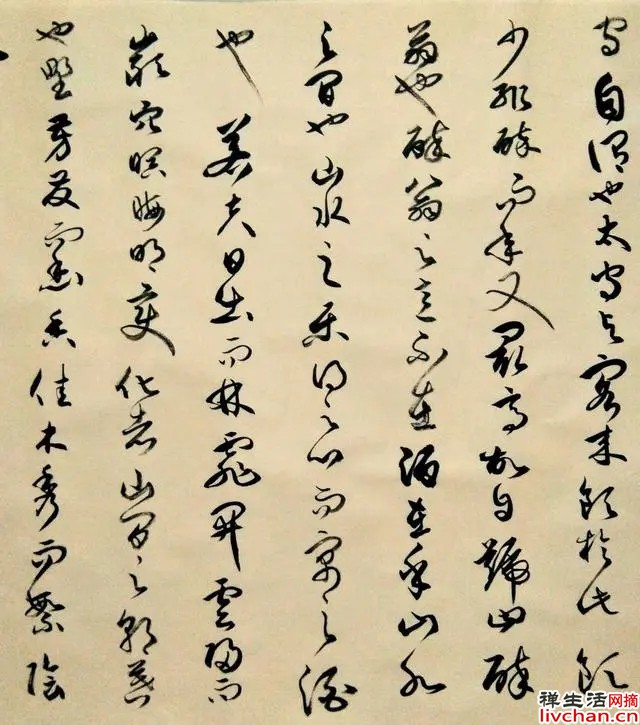 守自謂也太守與客來飲於此飲
少輒醉而年又最高故自號曰醉
翁也醉翁之意不在酒在乎山水
之間也山水之樂得之心而寓之酒
也若夫日出而林霏開雲歸而
巖穴暝晦明變化者山間之朝暮
也野芳發而幽香佳木秀而繁陰
禅生活网摘
livchan.cn